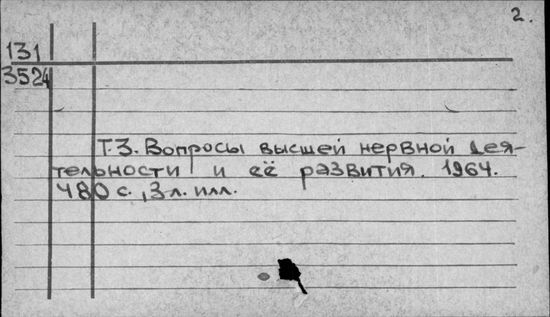 2.
131
3524
Т.3. Вопросы высшей нервной дея-
тельности и её развития. 1964.
480 с., 3 л. илл.